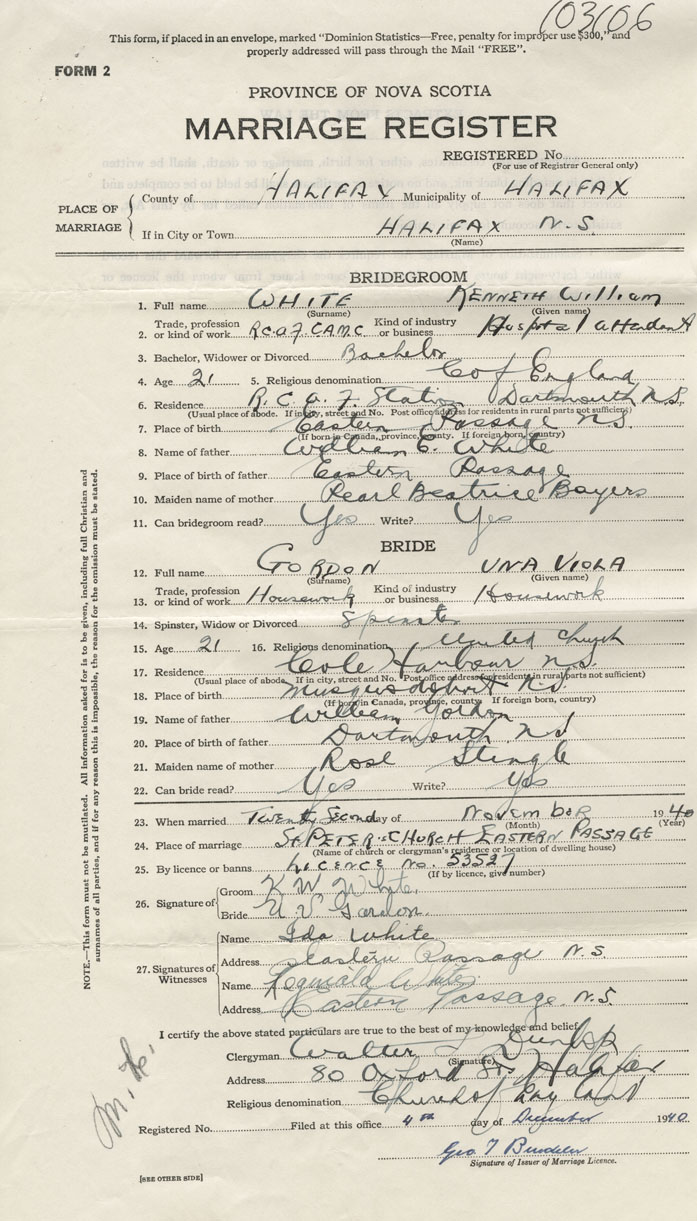 103106
This form, if placed in an envelope, marked "Dominion Statistics—Free, penalty for improper use $300," and
properly addressed will pass through the Mail "FREE".
FORM 2
PROVINCE OF NOVA SCOTIA
MARRIAGE REGISTER
REGISTERED No.
(For use of Registrar General only)
PLACE OF MARRIAGE
County of HALIFAX Municipality of HALIFAX
If in City or Town HALIFAX N.S.
(Name)
BRIDEGROOM
1. Full name WHITE KENNETH William
(Surname) (Given name)
2. Trade, profession or kind of work R.C.A.F. C.A.M.C Kind of industry or business Hospital attendant
3. Bachelor, Widower or Divorced Bachelor
4. Age 21 5. Religious denomination C of England
6. Residence R.C.A.F. Station Dartmouth N.S.
(Usual place of abode. If in city, street and No. Post office address for residents in rural parts not sufficient)
7. Place of birth Eastern Passage N.S.
(If born in Canada, province, county. If foreign born, country)
8. Name of father William E. White
9. Place of birth of father Eastern Passage
10. Maiden name of mother Pearl Beatrice Bayers
11. Can bridegroom read? Yes Write? Yes
BRIDE
12. Full name GORDON UNA VIOLA
(Surname) (Given name)
13. Trade, profession or kind of work Housework Kind of industry or business Housework
14. Spinster, Widow or Divorced Spinster
15. Age 21 16. Religious denomination United Church
17. Residence Cole Harbour N.S.
(Usual place of abode. If in city, street and No. Post office address for residents in rural parts not sufficient)
18. Place of birth Musquodoboit N.S.
(If born in Canada, province, county. If foreign born, country)
19. Name of father William Gordon
20. Place of birth of father Dartmouth N.S
21. Maiden name of mother Rose Stingle
22. Can bride read? Yes Write? Yes
23. When married Twenty Second day of November 1940
(Month) (Year)
24. Place of marriage St PETER'S CHURCH EASTERN PASSAGE
(Name of church or clergyman's residence or location of dwelling house)
25. By licence or banns Licence No. 53527
(If by licence, give number)
26. Signature of
Groom K. W. White.
Bride U. V. Gordon.
27. Signatures of Witnesses
Name Ida White
Address Eastern Passage N.S.
Name Reginald White
Address Eastern Passage N.S.
I certify the above stated particulars are true to the best of my knowledge and belief.
Clergyman Walter Dunlop
(Signature)
Address 80 Oxford St, Halifax
Religious denomination Church of England
Registered No. Filed at this office 4th day of December 1940
Geo T
Signature of Issuer of Marriage Licence.
[SEE OTHER SIDE]
NOTE.—This form must not be mutilated. All information asked for is to be given, including full Christian and
surnames of all parties, and if for any reason this is impossible, the reason for the omission must be stated.